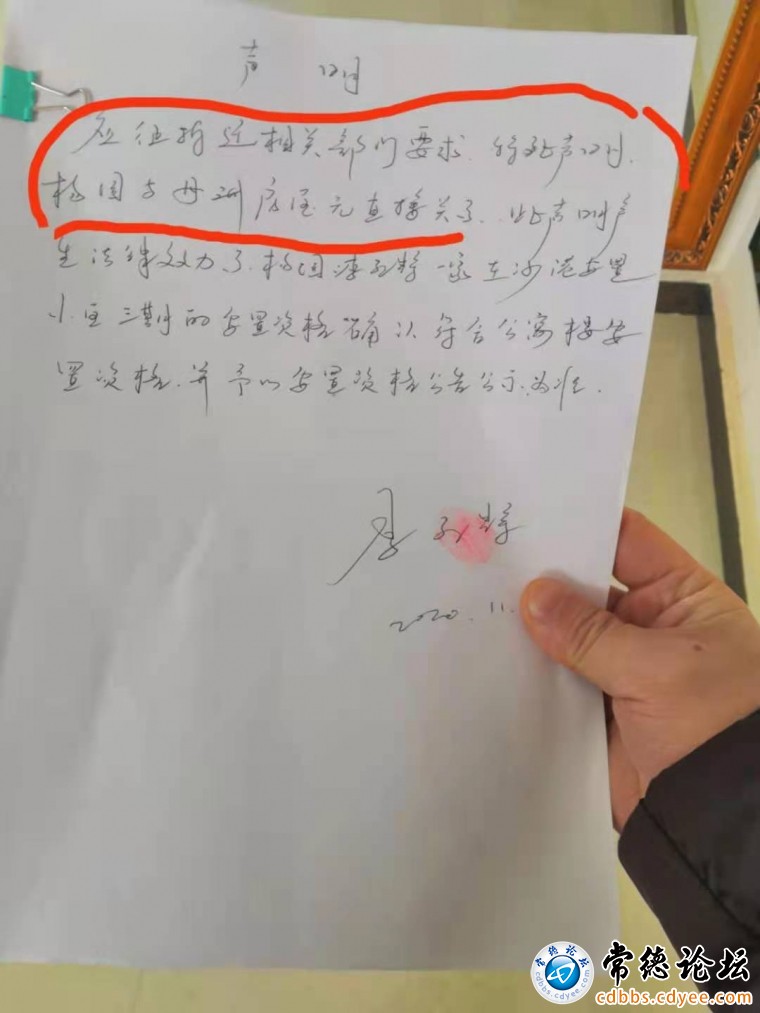 声 明
应征拆迁相关部门要求.特此声明.
杨国与母训房屋无直接关系.此声明产
生法律效力.杨国唐 一家在沙港安置
小区三期的安置资格确认符合公寓楼安
置资格.并予以安置资格公告公示为准.
2020.11.
常德论坛
cdbbs.cdyee.com